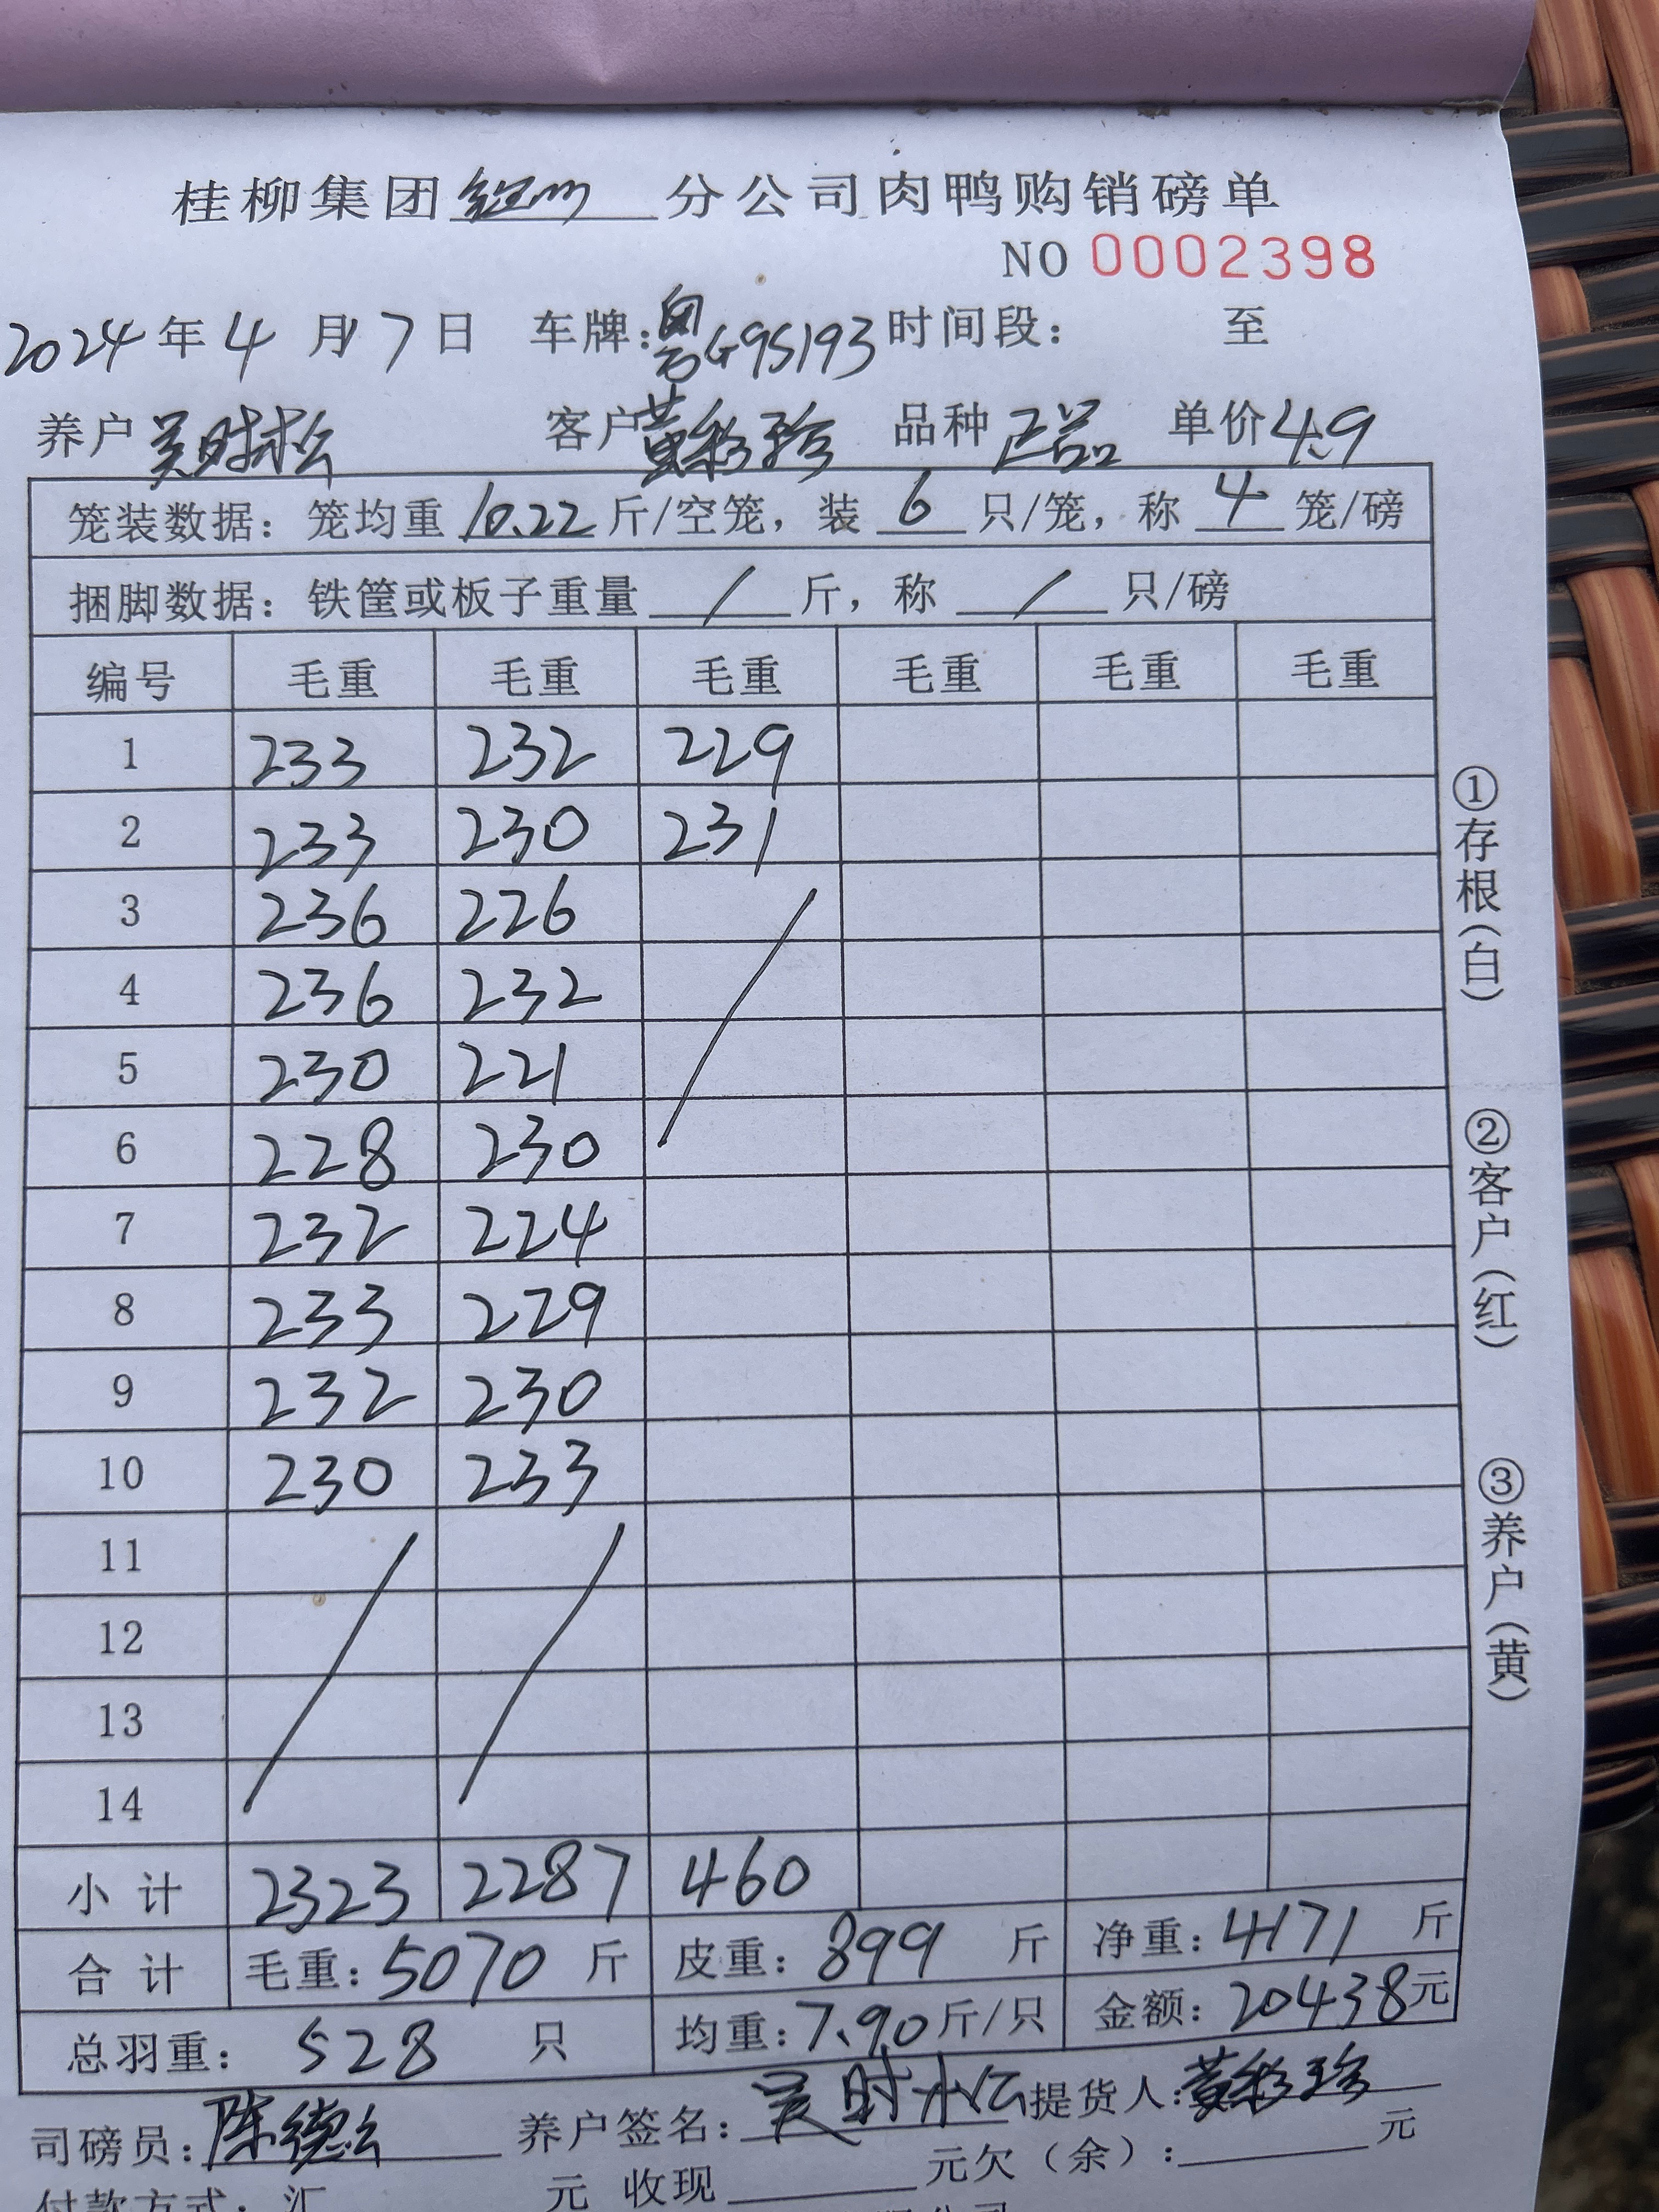 桂柳集团 分公司肉鸭购销磅单
NO 0002398
2024年4月7日 车牌:粤G95193 时间段: 至
养户 吴时松 客户 黄彩珍 品种 正品 单价 4.9
笼装数据: 笼均重 10.22 斤/空笼, 装 6 只/笼, 称 4 笼/磅
捆脚数据: 铁筐或板子重量 / 斤, 称 / 只/磅
编号 毛重 毛重 毛重 毛重 毛重 毛重
1 233 232 229
2 233 230 231
3 236 226
4 236 232
5 230 221
6 228 230
7 232 224
8 233 229
9 232 230
10 230 233
11
12
13
14
小计 2323 2287 460
合计 毛重: 5070 斤 皮重: 899 斤 净重: 4171 斤
总羽重: 528 只 均重: 7.90 斤/只 金额: 20438元
司磅员: 陈德 养户签名: 吴时松 提货人: 黄彩珍
付款方式: 汇 元 收现 元欠(余): 元
①存根(白) ②客户(红) ③养户(黄)